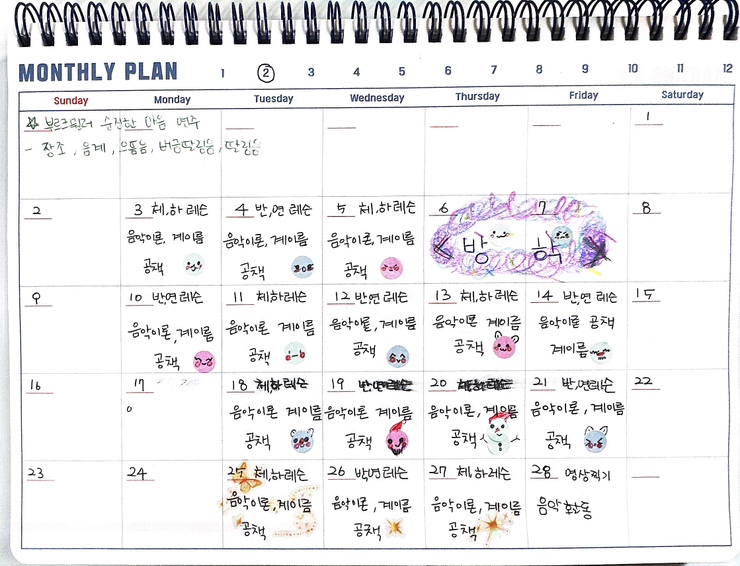 MONTHLY PLAN
1 2 3 4 5 6 7 8 9 10 11 12
Sunday Monday Tuesday Wednesday Thursday Friday Saturday
☆ 부르크뮐러 순진한 마음 연주
- 장조, 음계, 으뜸음, 버금딸림음, 딸림음
1
2
3 체,하 레슨
음악이론, 계이름
공책
4 반,연 레슨
음악이론, 계이름
공책
5 체,하 레슨
음악이론, 계이름
공책
6
7
방 학
8
9
10 반,연 레슨
음악이론, 계이름
공책
11 체,하 레슨
음악이론 계이름
공책
12 반,연 레슨
음악이론, 계이름
공책
13 체,하 레슨
음악이론 계이름
공책
14 반,연 레슨
음악이론 공책
계이름
15
16
17
18 체,하 레슨
음악이론 계이름
공책
19 반,연 레슨
음악이론 계이름
공책
20
음악이론, 계이름
공책
21 반,연 레슨
음악이론, 계이름
공책
22
23
24
25 체,하 레슨
음악이론, 계이름
공책
26 반,연 레슨
음악이론, 계이름
공책
27 체,하 레슨
음악이론, 계이름
공책
28 영상찍기
음악 활동